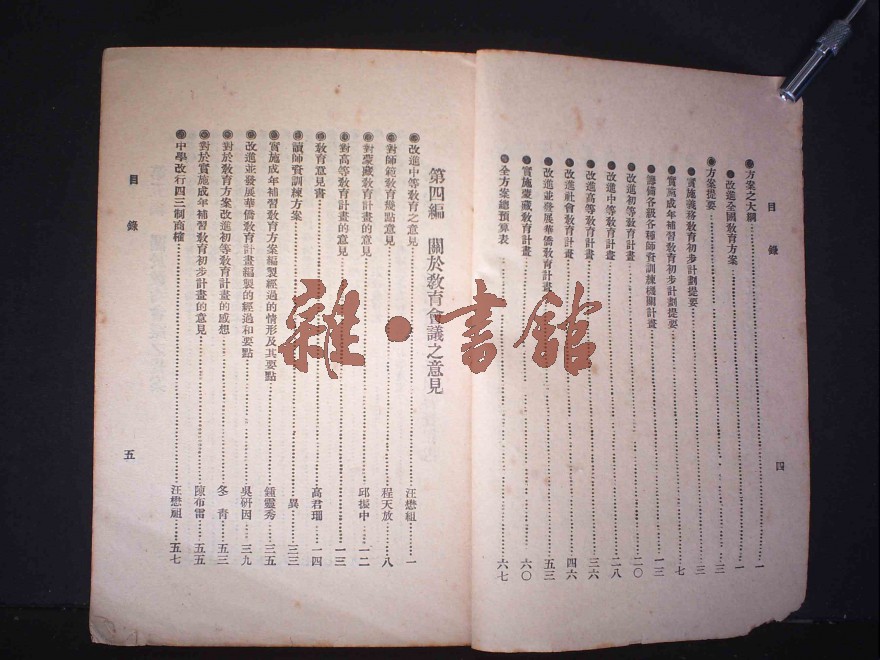 目錄
●方案之大綱……一
●改進全國教育方案……一
●方案提要……三
●實施義務教育初步計劃提要……三
●實施成年補習教育初步計劃提要……七
●籌備各級各種師資訓練機關計畫……一三
●改進初等教育計畫……二〇
●改進中等教育計畫……二八
●改進高等教育計畫……三六
●改進社會教育計畫……四六
●改進並發展華僑教育計畫……五三
●實施蒙藏教育計畫……六〇
●全方案總預算表……六七
四
第四編 關於教育會議之意見
●改進中等教育之意見……汪懋祖……一
●對師範教育幾點意見……程天放……八
●對蒙藏教育計畫的意見……邱振中……一二
●對高等教育計畫的意見……一三
●教育意見書……高君珊……一四
●讀師資訓練方案……異……三三
●實施成年補習教育方案編製經過的情形及其要點……鍾靈秀……三五
●改進並發展華僑教育計畫編製的經過和要點……吳研因……三九
●對於教育方案改進初等教育計畫的感想……冬青……五三
●對於實施成年補習教育初步計畫的意見……陳布雷……五五
●中學改行四三制商榷……汪懋祖……五七
目錄
五
雜·書館